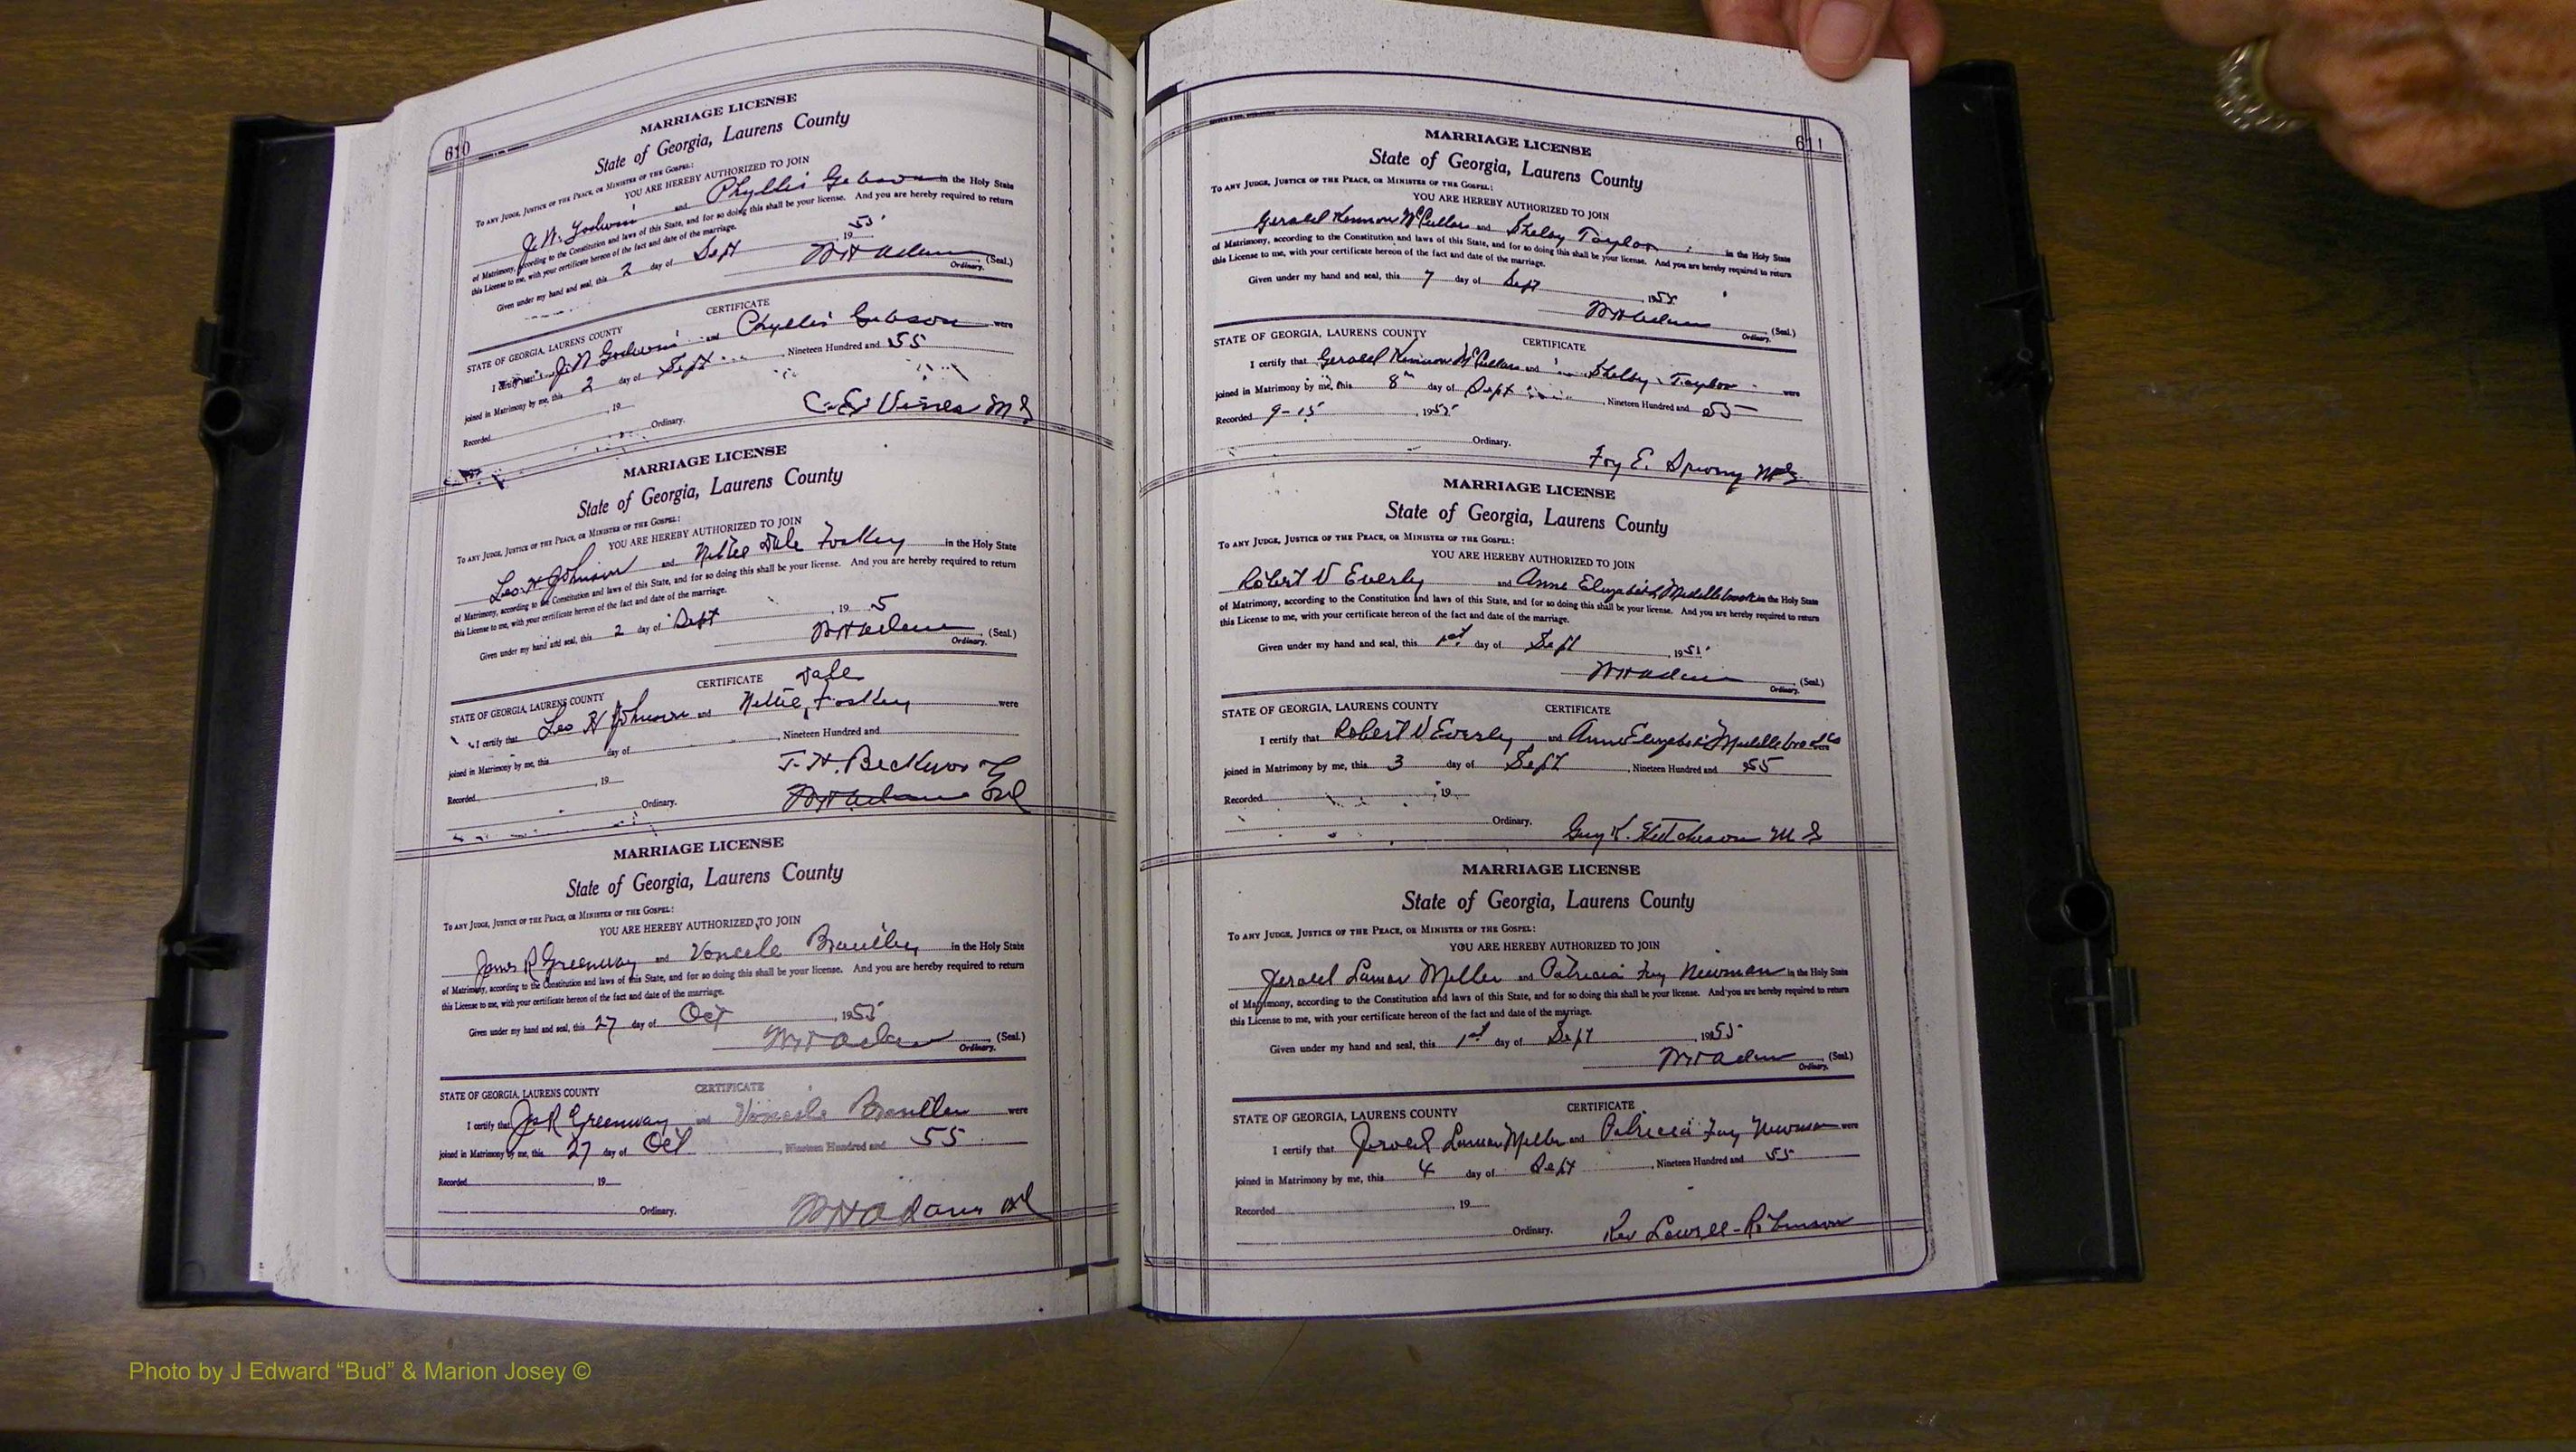 610
MARRIAGE LICENSE
State of Georgia, Laurens County
To any Judge, Justice of the Peace, or Minister of the Gospel:
YOU ARE HEREBY AUTHORIZED TO JOIN
J. N. Godwin and Phyllis Gibson in the Holy State
of Matrimony, according to the Constitution and laws of this State, and for so doing this shall be your license. And you are hereby required to return
this License to me, with your certificate hereon of the fact and date of the marriage.
Given under my hand and seal, this 2 day of Sept 19 55
(Seal.)
Ordinary.
CERTIFICATE
STATE OF GEORGIA, LAURENS COUNTY
I certify that J N Godwin and Phyllis Gibson were
joined in Matrimony by me, this 2 day of Sept Nineteen Hundred and 55
Recorded , 19
Ordinary. C. E. Vines M G
MARRIAGE LICENSE
State of Georgia, Laurens County
To any Judge, Justice of the Peace, or Minister of the Gospel:
YOU ARE HEREBY AUTHORIZED TO JOIN
Leo H Johnson and Nettie Dale Foskey in the Holy State
of Matrimony, according to the Constitution and laws of this State, and for so doing this shall be your license. And you are hereby required to return
this License to me, with your certificate hereon of the fact and date of the marriage.
Given under my hand and seal, this 2 day of Sept , 19 5
(Seal.)
Ordinary.
CERTIFICATE
Dale
STATE OF GEORGIA, LAURENS COUNTY
I certify that Leo H Johnson and Nettie Foskey were
joined in Matrimony by me, this day of , Nineteen Hundred and
Recorded , 19
T. H. Beckworth
Ordinary.
MARRIAGE LICENSE
State of Georgia, Laurens County
To any Judge, Justice of the Peace, or Minister of the Gospel:
YOU ARE HEREBY AUTHORIZED TO JOIN
James R Greenway and Voncile Brantley in the Holy State
of Matrimony, according to the Constitution and laws of this State, and for so doing this shall be your license. And you are hereby required to return
this License to me, with your certificate hereon of the fact and date of the marriage.
Given under my hand and seal, this 27 day of Oct , 1955
(Seal.)
Ordinary.
CERTIFICATE
STATE OF GEORGIA, LAURENS COUNTY
I certify that Jas R Greenway and Voncile were
joined in Matrimony by me, this 27 day of Oct , Nineteen Hundred and 55
Recorded , 19
Ordinary. W H Adams
611
MARRIAGE LICENSE
State of Georgia, Laurens County
To any Judge, Justice of the Peace, or Minister of the Gospel:
YOU ARE HEREBY AUTHORIZED TO JOIN
Gerald Kennon McCullars and Shelby Taylor in the Holy State
of Matrimony, according to the Constitution and laws of this State, and for so doing this shall be your license. And you are hereby required to return
this License to me, with your certificate hereon of the fact and date of the marriage.
Given under my hand and seal, this 7 day of Sept , 1955
(Seal.)
Ordinary.
STATE OF GEORGIA, LAURENS COUNTY CERTIFICATE
I certify that Gerald Kennon McCullars and Shelby Taylor were
joined in Matrimony by me, this 8th day of Sept , Nineteen Hundred and 55
Recorded 9-15 , 1955
Ordinary.
Foy E. M G
MARRIAGE LICENSE
State of Georgia, Laurens County
To any Judge, Justice of the Peace, or Minister of the Gospel:
YOU ARE HEREBY AUTHORIZED TO JOIN
Robert V Everly and Anne Elizabeth Middlebrooks in the Holy State
of Matrimony, according to the Constitution and laws of this State, and for so doing this shall be your license. And you are hereby required to return
this License to me, with your certificate hereon of the fact and date of the marriage.
Given under my hand and seal, this 1st day of Sept , 195
(Seal.)
Ordinary.
STATE OF GEORGIA, LAURENS COUNTY CERTIFICATE
I certify that Robert V Everly and Anne Elizabeth Middlebrooks were
joined in Matrimony by me, this 3 day of Sept , Nineteen Hundred and 55
Recorded , 19
Ordinary.
Guy K. Hutcherson M G
MARRIAGE LICENSE
State of Georgia, Laurens County
To any Judge, Justice of the Peace, or Minister of the Gospel:
YOU ARE HEREBY AUTHORIZED TO JOIN
Jerald Lamar Miller and Patricia Fay Newman in the Holy State
of Matrimony, according to the Constitution and laws of this State, and for so doing this shall be your license. And you are hereby required to return
this License to me, with your certificate hereon of the fact and date of the marriage.
Given under my hand and seal, this 1st day of Sept , 1955
(Seal.)
Ordinary.
STATE OF GEORGIA, LAURENS COUNTY CERTIFICATE
I certify that Jerald Lamar Miller and Patricia Fay Newman were
joined in Matrimony by me, this 4 day of Sept , Nineteen Hundred and 55
Recorded , 19
Ordinary. Rev Lowell Robinson
Photo by J Edward “Bud” & Marion Josey ©